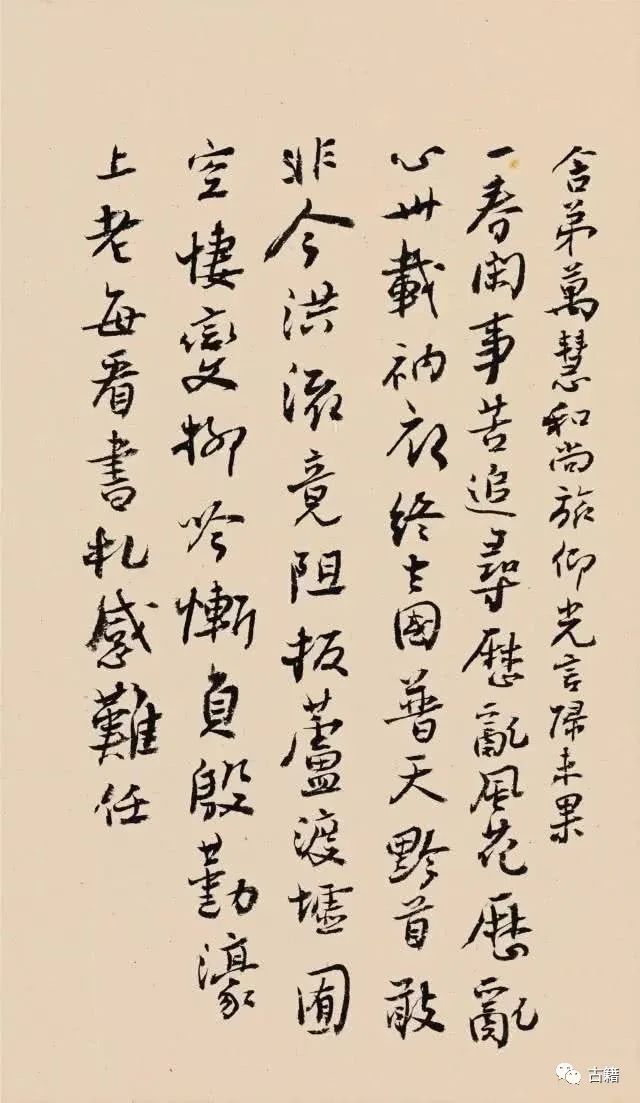 舍弟萬慧和尚旅仰光言歸未果
一春閑事苦追尋歷亂風花歷亂
心卅載衲衣終去國普天黔首敢
非今洪流竟阻扳蘆渡墟囿
空悽變柳吟慚負殷勤濠
上老每看書札感難任
古籍